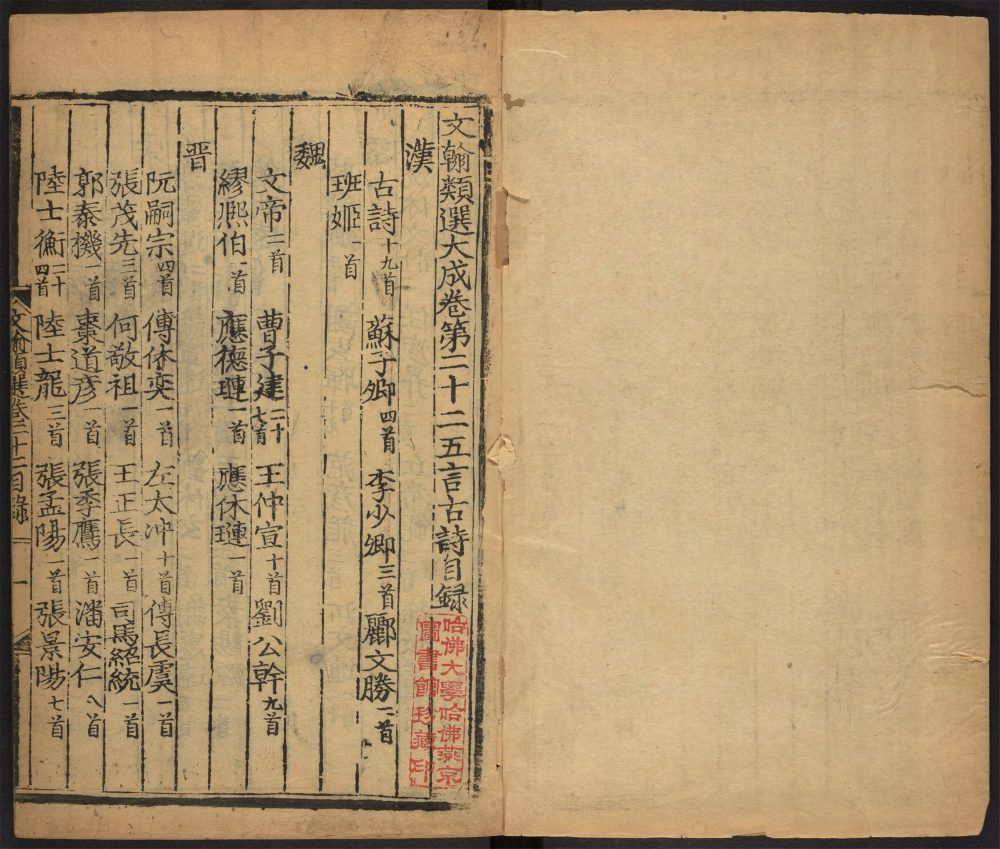 文翰類選大成卷第二十二五言古詩目録
漢
古詩十九首 蘇子卿四首 李少卿三首 酈文勝二首
班姬一首
魏
文帝二首 曹子建二十七首 王仲宣十首 劉公幹九首
繆熈伯一首 應德璉一首 應休璉一首
晋
阮嗣宗四首 傅休奕一首 左太冲十首 傅長虞一首
張茂先三首 何敬祖一首 王正長一首 司馬紹統一首
郭泰機一首 棗道彦一首 張季鷹一首 潘安仁八首
陸士衡二十四首 陸士龍三首 張孟陽一首 張景陽七首
文翰類選卷二十二目録
一
哈佛大學哈佛燕京
圖書館珍藏印